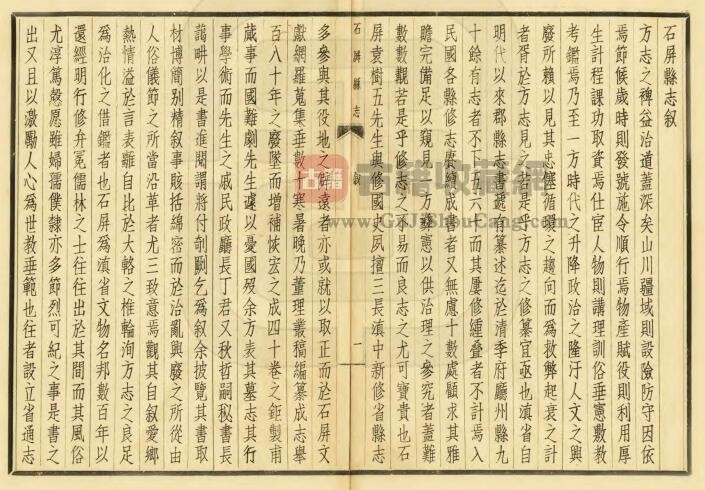 石屏縣志叙
方志之裨益治道蓋深矣山川疆域則設險防守因依
焉節候歲時則發號施令順行焉物產賦役則利用厚
生計程課功取資焉仕宦人物則講理訓俗垂憲敷教
考鑑焉乃至一方時代之升降政治之隆汙人文之興
廢所賴以見其忠經循環之趨向而為救弊起衰之計
者胥於方志見之若是乎方志之修纂宜亟也滇省自
明代以來郡縣志書遞有纂述迄於清季府廳州縣九
十餘有志者不百五六十而其屢修緟疊者不計焉入
民國各縣修志賡續成書者又無慮十數處顧求其雅
贍完備足以窺見一方謨憲以供治理之參究者蓋難
數數觀若是乎修志之不易而良志之尤可寶貴也石
屏袁樹五先生與修國史夙擅三長滇中新修省縣志
石屏縣志
叙
一
多參與其役地之所遠者亦或就以取正而於石屏文
獻網羅蒐集垂數十寒暑晚乃董理叢稿編纂成志舉
百八十年之廢墜而增補恢宏之成四十卷之鉅製甫
蕆事而國難劇先生遽以憂國歿余方表其墓志其行
事學術而先生之戚民政廳長丁君又秋哲嗣秘書長
藹畊以是書進閱謂將付剞劂乞為叙余披覽其書取
材博簡別精叙事賅括綿密而於治亂興廢之所從由
人俗儀節之所當沿革者尤三致意焉觀其自叙愛鄉
熱情溢於言表雖自比於大輅之椎輪洵方志之良足
為治化之借鑑者也石屏為滇省文物名邦數百年以
還經明行修弁冕儒林之士往往出於其間而其風俗
尤淳篤愨愿雖婦孺僕隸亦多節烈可紀之事是書之
出又且以激勵人心為世教垂範也往者設立省通志
古籍
古籍收藏網
www.GXJShouCang.com